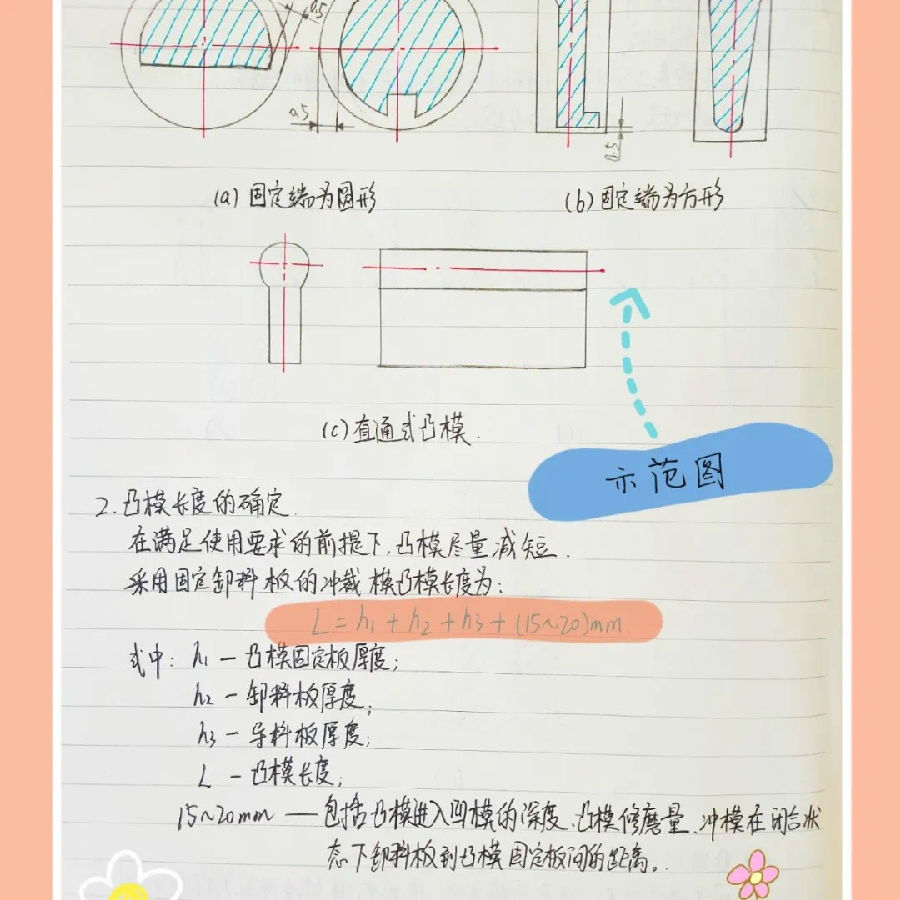 0.5
0.5
0.5
(a)固定端为圆形
(b)固定端为方形
(c)直通式凸模.
示范图
2.凸模长度的确定.
在满足使用要求的前提下,凸模尽量减短.
采用固定卸料板的冲裁模凸模长度为:
L=h₁+h₂+h₃+(15~20)mm
式中: h₁—凸模固定板厚度;
h₂—卸料板厚度;
h₃—导料板厚度;
L—凸模长度;
15~20mm——包括凸模进入凹模的深度、凸模修磨量、冲模在闭合状
态下卸料板到凸模固定板间的距离。